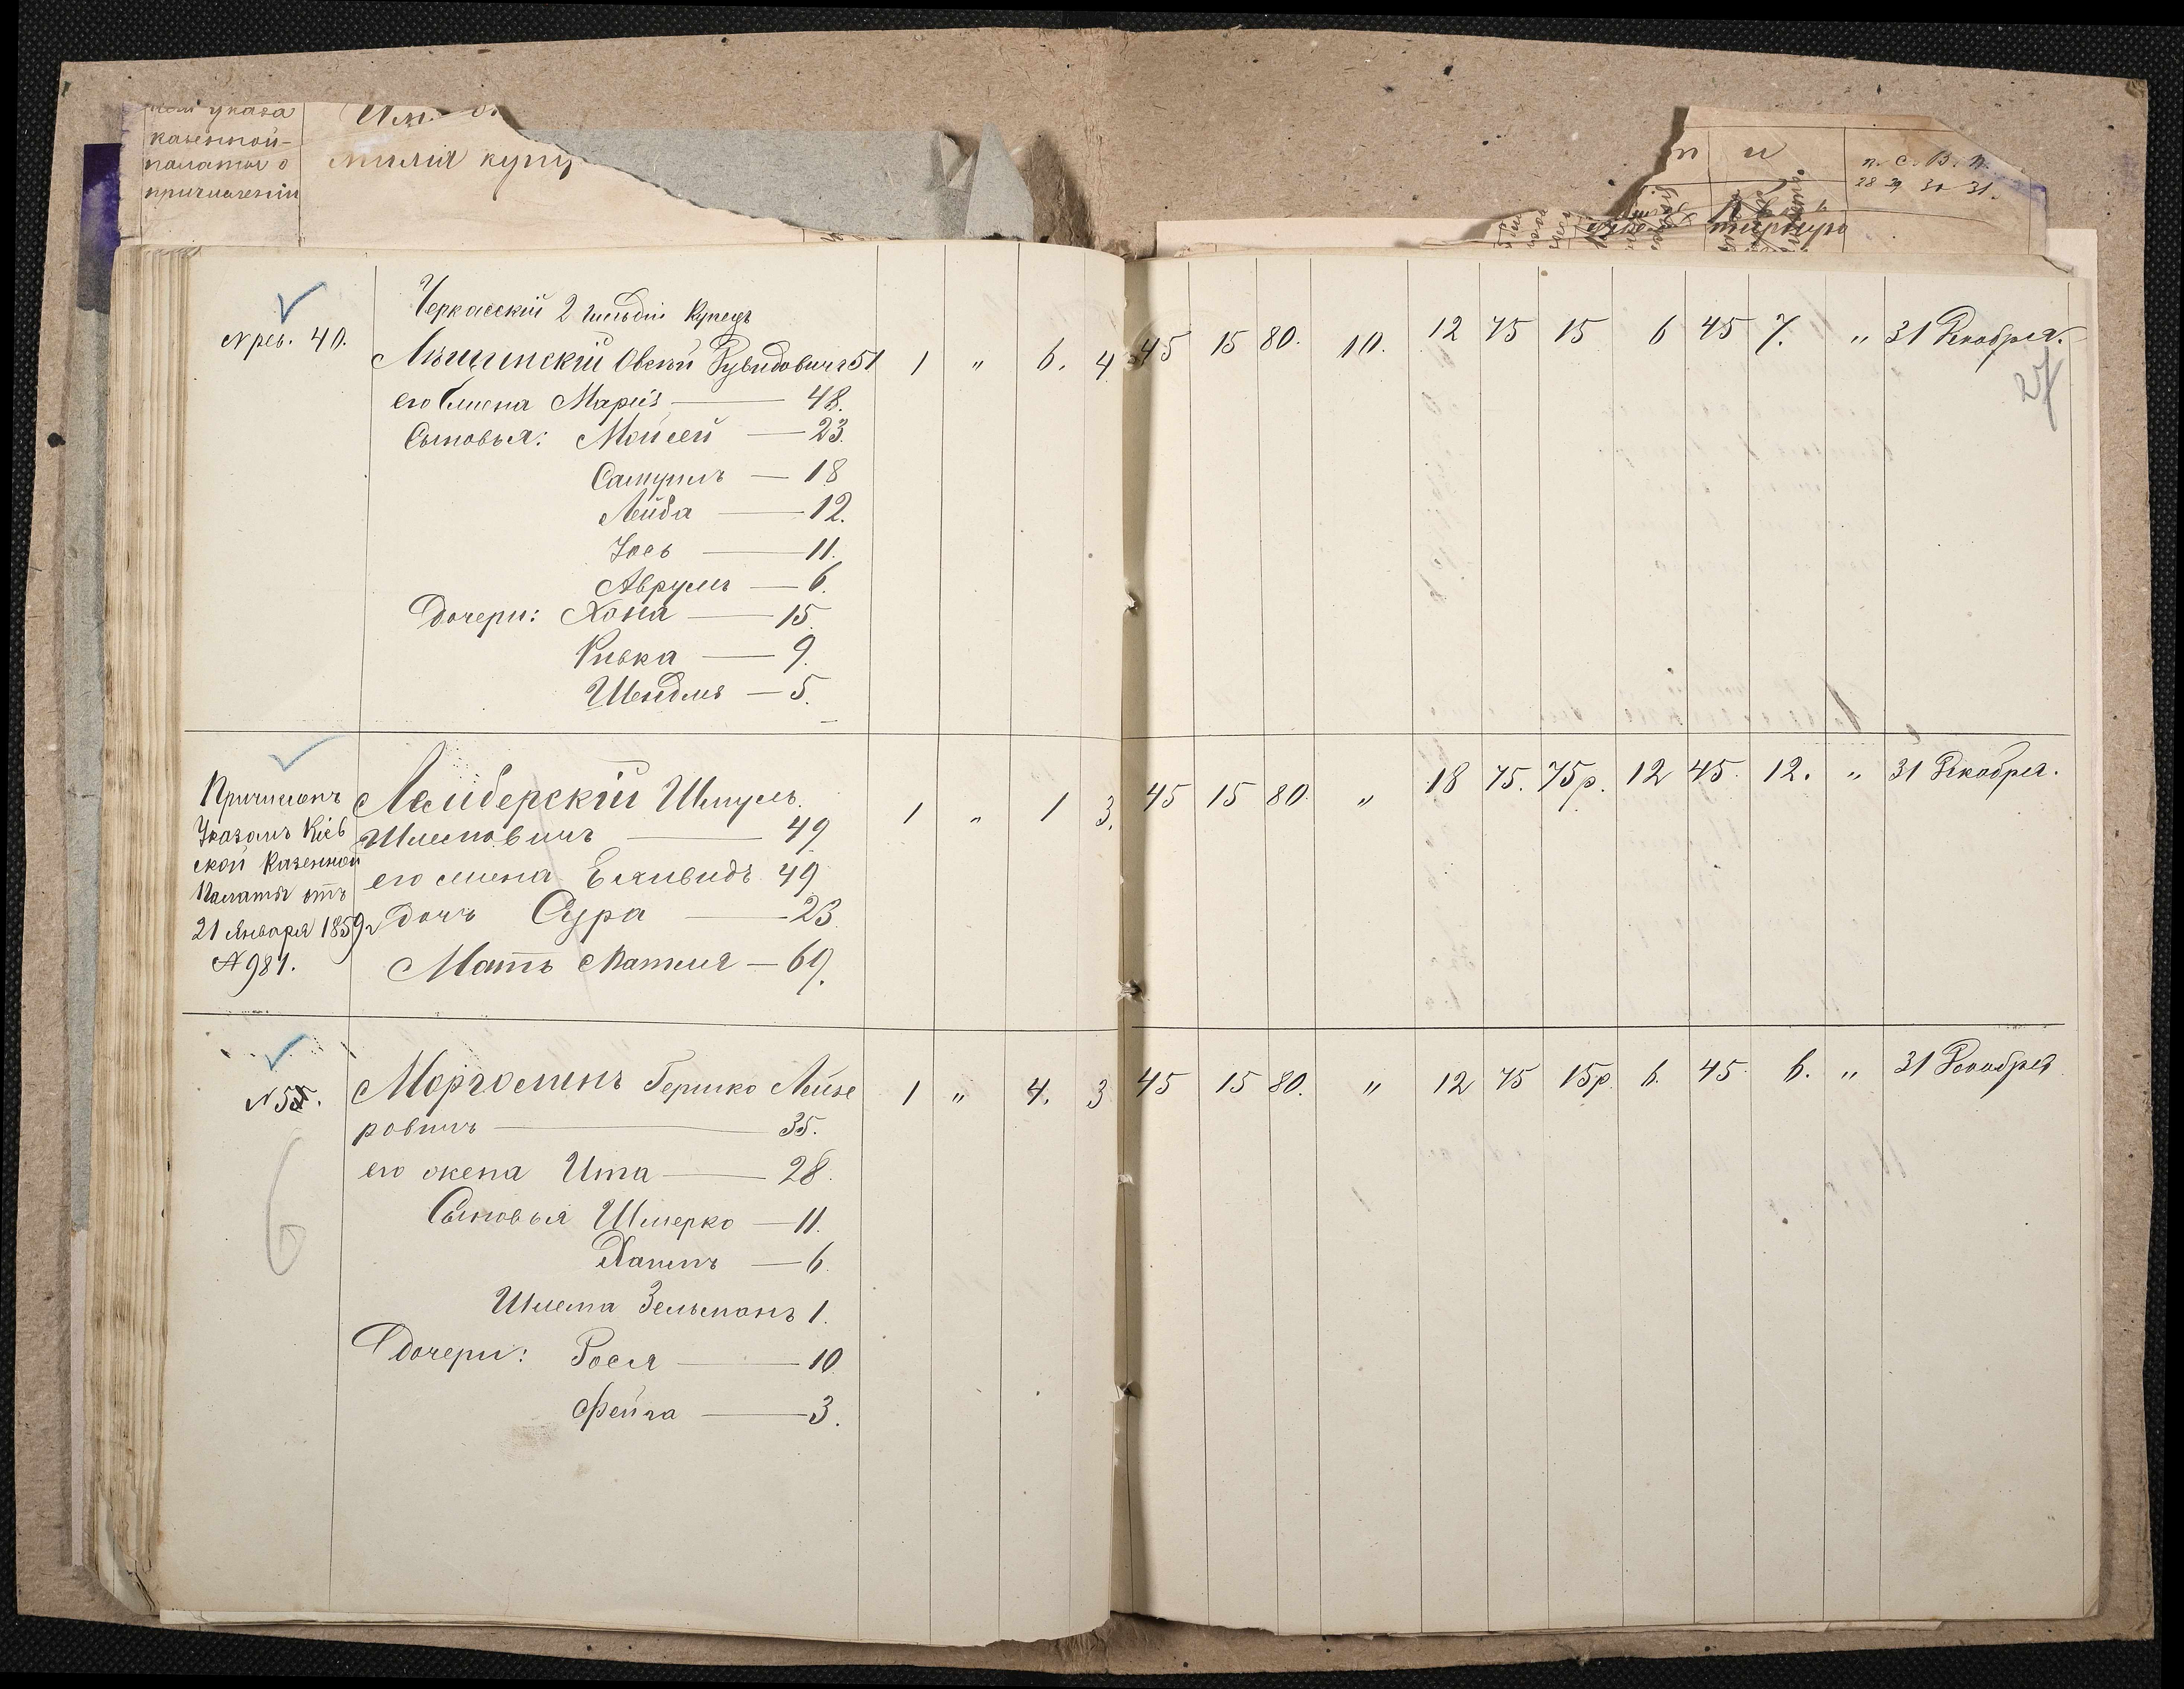 указа
казенной-
палаты о
причислении
милія купц
п. с. в. п.
28 29 30 31.
Черкасскій 2 гильдіи Купецъ
№ рев. 40.
Лящинскій Овсей Рувидовичъ 51 1 " 6. 4 45 15 80. 10. 12 75 15 6 45 7. " 31 Декабря.
27
его жена Марія — 48.
Сыновья: Мойсей — 23.
Самуилъ — 18
Лейба — 12.
Іось — 11.
Аврумъ — 6.
Дочери: Хона — 15.
Ривка — 9.
Шейдля — 5.
Причисленъ
Указомъ Кіев
ской Казенной
Палаты отъ
21 Января 1859 г
№ 981.
Лейберскій Шмуль 1 " 1 3. 45 15 80. " 18 75. 75р. 12 45. 12. " 31 Декабря.
Шлемовичъ — 49
его жена 49
дочь Сура — 23
Мать — 69.
№ 55.
Марголинъ Гершко Лейзе 1 " 4. 3 45 15 80. " 12 75 15р. 6. 45. 6. " 31 Декабря
ровичъ — 35.
его жена Ита — 28.
Сыновья Шмерко — 11.
Хаимъ — 6.
Шлема Зельманъ 1.
Дочери: Рося — 10
Фейга — 3.
6